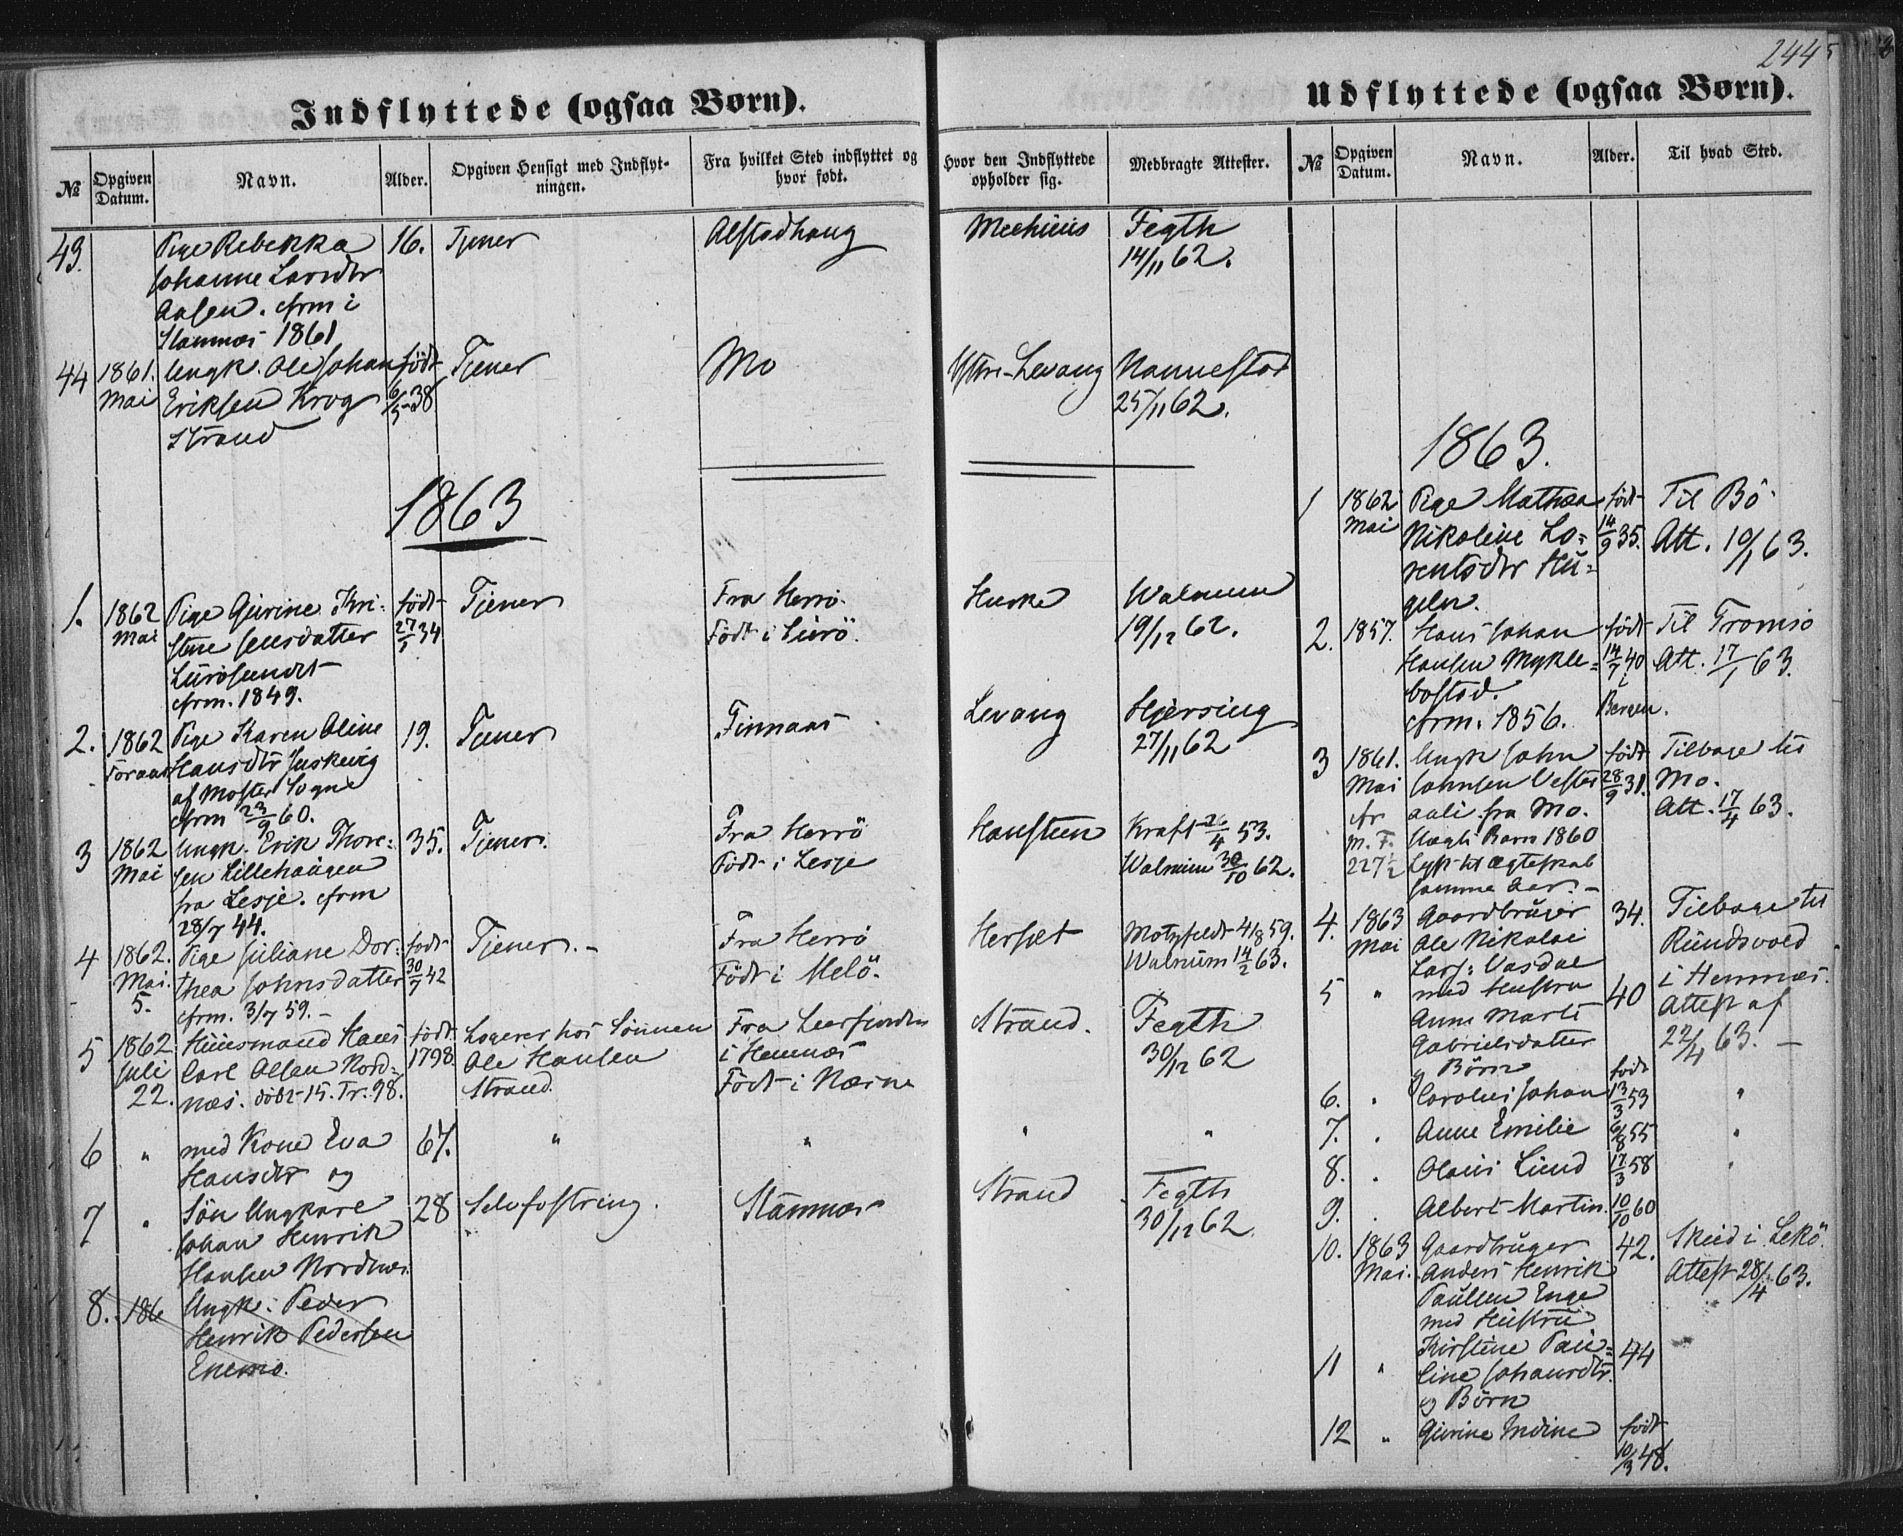 244
Indflyttede (ogsaa Børn).
№
Opgiven Datum.
Navn.
Alder.
Opgiven Hensigt med Indflyt-
ningen.
Fra hvilket Sted indflyttet og
hvor født.
Hvor den Indflyttede
opholder sig.
Medbragte Attester.
43.
Pige Rebekka
Johanne Larsdtr
Aasen. cfrm i
Stamnæs 1861
16.
Tjener
Alstadhaug
Fegth
14/11 62.
44
1861.
Mai
Ungk. Ole Johan
Eriksen Krog
Strand
født
6/5-38
Tjener
Mo
Yttre-Levang
Nannestad
25/11 62.
1863
1.
1862
Mai
Pige Gjurine Kri-
stine Jensdatter
Lurøsundet
cfrm. 1849.
født
27/1 34
Tjener
Fra Herrö.
Födt i Lurö.
Huske
Walnum
19/12 62.
2.
1862
Pige Karen Oline
Hansdtr
af Moster Sogne
cfrm 23/9 60.
19.
Tjener
Finnaas
Levang
Hjersing
27/11 62
3
1862
Mai
Ungk. Erik Thore-
sen Lillehaugen
fra Lesje. cfrm
28/7 44.
35.
Tjener.
Fra Herrö
Födt i Lesje
Hansteen
Kraft 26/4 53.
Walnum 30/10 62.
4
1862.
Mai
5.
Pige Juliane Dor-
thea Johnsdatter
cfrm. 3/7 59.
født
30/7 42
Tjener.
Fra Herrö
Födt i Melö.
Herset
Motzfeldt 4/8 59.
Walnum 14/2 63.
5
1862
Juli
22.
Huusmand Hans
Carl Olsen Nord-
næs. döbt 15. Tr. 98.
født
1798.
Logerer hos Sönnen
Ole Hansen
Strand
Fra Leerfjorden
i Hemnæs
Födt i Nærøe
Strand.
Fegth
30/12 62
6
"
med Kone Eva
Hansdtr og
67.
"
"
"
"
7
"
Søn Ungkarl
Johan Henrik
Hansen Nordnæs
28
Selvfostring.
Stamnæs
Strand
Fegth
30/12 62
8.
186
Ungk. Peder
Henrik Pedersen
Enemo.
Udflyttede (ogsaa Børn).
№
Opgiven Datum.
Navn.
Alder.
Til hvad Sted.
1863.
1
1862
Mai
Pige Mathea
Nikoline Lo-
rentsdtr Hu-
geln.
født
14/9 35.
Til Bö
Att. 10/1 63.
2.
1857.
Hans Johan
Hansen Mykle-
bostad.
cfrm. 1856.
født
14/7 40
i
Bergen.
Til Tromsö
Att. 17/1 63.
3
1861.
Mai
cfr
m. F.
227 1/2
Ungk John
Johnsen Vester
aali fra Mo.
Uægte Barn 1860
Lyst til Ægteskab
samme Aar.
født
28/9 31.
Tilbage til
Mo.
Att. 17/4 63.
4.
1863
Mai
Gaardbruger
Ole Nikolai
Lars: Vasdal
34.
Tilbage til
Rundsvold
i Hemnæs.
Attest af
22/4 63.
5
"
med Hustru
Anne Marts
Gabrielsdatter
og Børn
40
6.
Carolus Johan
født
13/3 53
"
7.
Anne Emilie
6/8 55
"
8.
Olaus Lund
17/3 58
"
9.
Albert Martin.
10/10 60
10.
1863
Mai.
Gaardbruger
Anders Henrik
Paulsen Enge
med Hustru
42.
Skeid i Lekö
Attest 28/4 63.
11
"
Kirstine Pau-
line Johansdtr.
og Börn
44
12
"
Gjurine Indine
født
10/3 48.